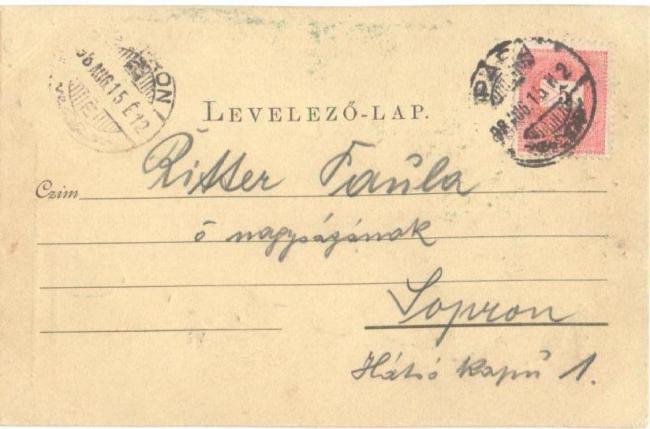 LEVELEZŐ-LAP.
98 AUG 15 É 12
PÁPA
98 AUG 15
5
Czim Ritter Paula
ő nagyságának
Sopron
Hátsó kapú 1.